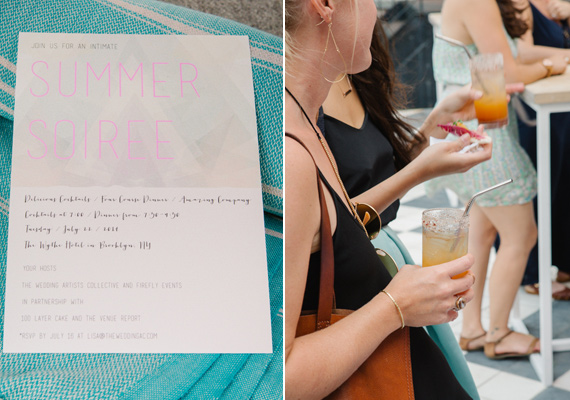 JOIN US FOR AN INTIMATE
SUMMER
SOIREE
Delicious Cocktails / Four Course Dinner / Amazing Company
Cocktails at 7:00 / Dinner from 7:30-9:30
Tuesday / July
The Wythe Hotel in Brooklyn, NY
YOUR HOSTS
THE WEDDING ARTISTS COLLECTIVE AND FIREFLY EVENTS
IN PARTNERSHIP WITH
LAYER CAKE AND THE VENUE REPORT
*RSVP BY JULY 18 AT LISA@THEWEDDINGAC.COM